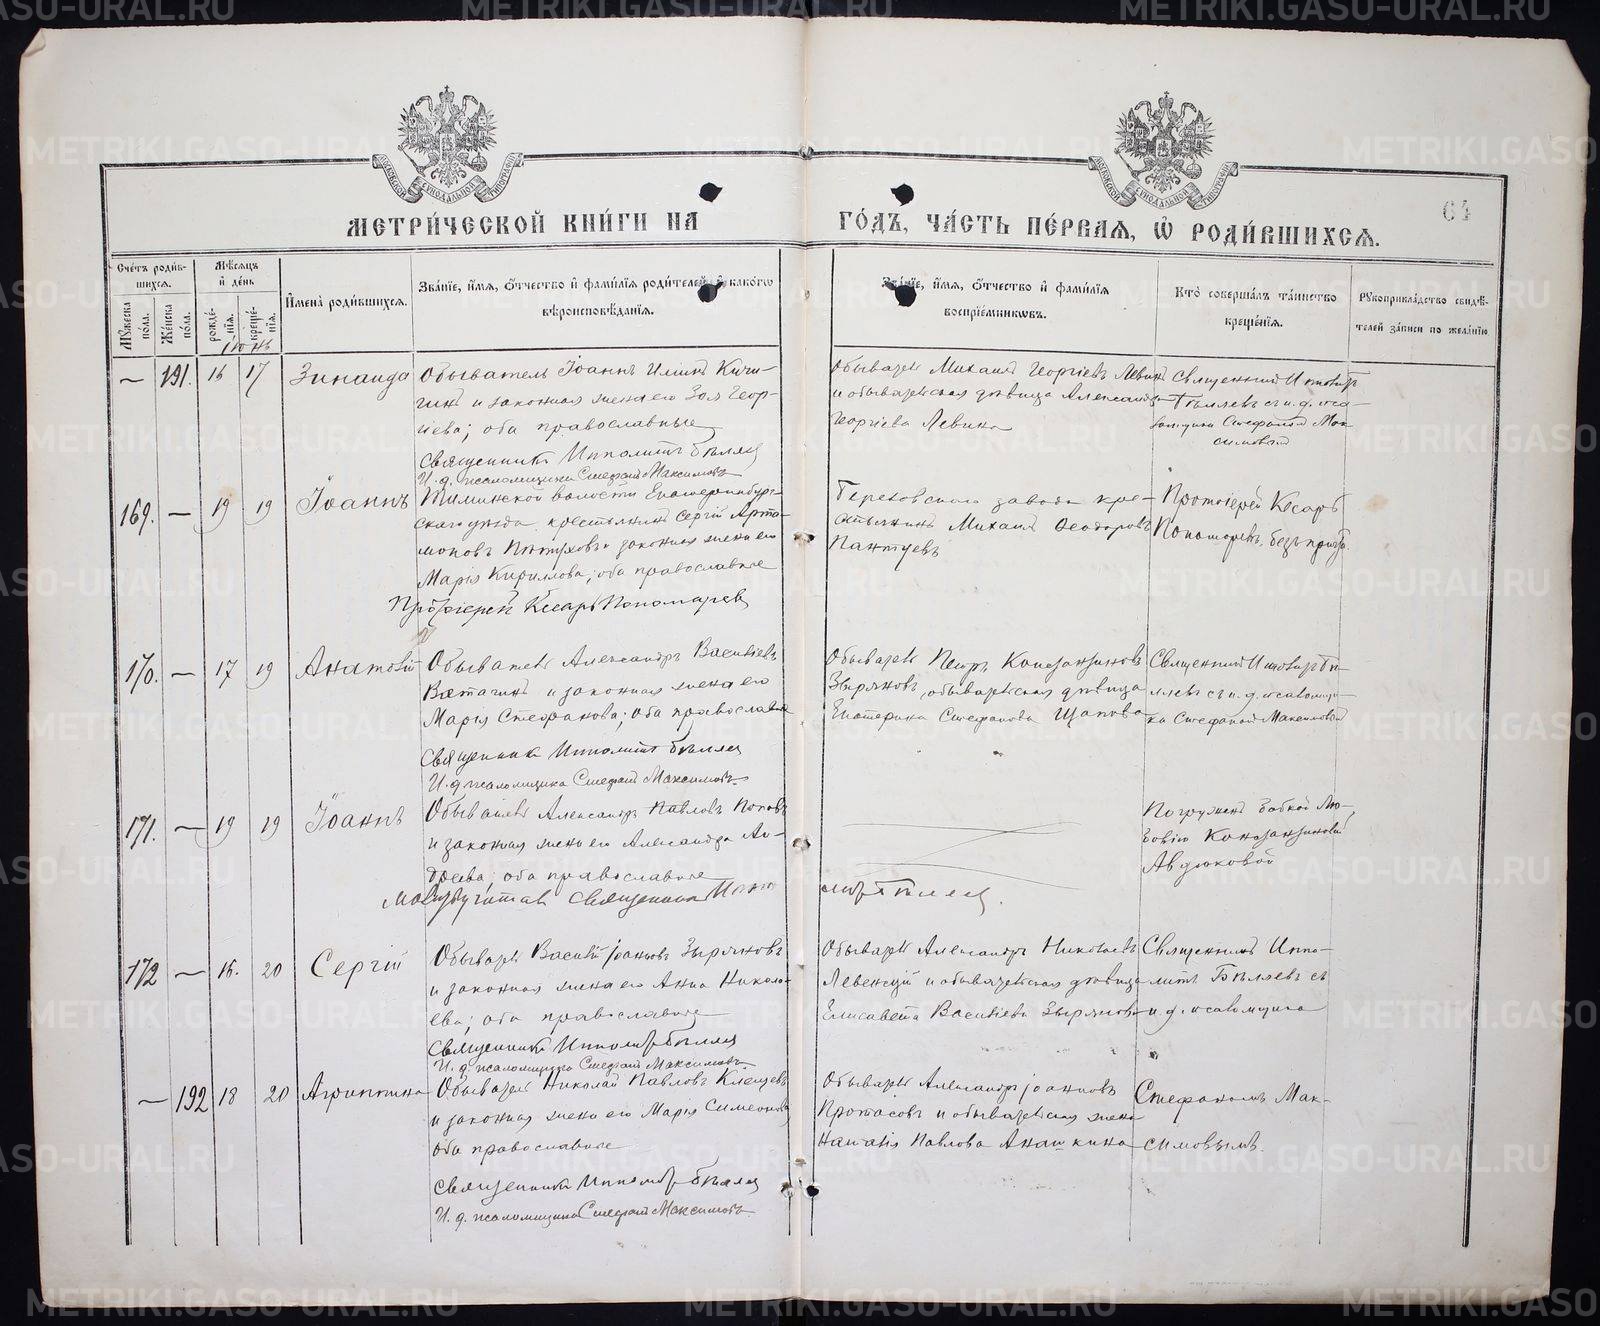 МЕТРИ́ЧЕСКОЙ КНИ́ГИ НА ГО́ДЪ, ЧА́СТЬ ПЕ́РВАѦ, Ѡ҆ РОДИ́ВШИХСѦ.
64
Сче́тъ роди́в-
шихся.
Мѣ́сяцъ
и҆ де́нь
Му́жеска
по́ла.
Же́нска
по́ла.
рожде́-
нія.
креще́-
нія.
Іюнь
И҆мена̀ роди́вшихся.
Зва́нїе, и҆́мя, ѻ҆́тчество и҆ фами́лїя роди́телей, и҆ како́гѡ
вѣроисповѣ́данїя.
Зва́нїе, и҆́мя, ѻ҆́тчество и҆ фами́лїя
воспрїе́мниковъ.
Кто̀ соверша́лъ та́инство
креще́нїя.
Рукоприкла́дство свидѣ́-
телей за́писи по жела́нїю
— 191. 16 17 Зинаида
Обыватель Іоаннъ Илiинъ Кичи-
гинъ и законная жена его Зоя Геор-
гіева; оба православные
Священникъ Ипполитъ Бѣляев
И. д. псаломщика Стефанъ Максимовъ
Михаилъ Георгіевъ Левинъ
и обывательская дѣвица Александра
Георгіева Левина
Священник Ипполитъ
Бѣляевъ съ и. д. пса-
ломщика Стефаном Мак-
симовым
169. — 19 19 Іоаннъ
волости Екатеринбург-
скаго уѣзда крестьянинъ Сергій Арта-
моновъ Пѣтуховъ и законная жена его
Марія Кириллова; оба православные
Протоіерей Кесарь Пономарев
Березовскаго завода кре-
стьянинъ Михаил Ѳеодоровъ
Пантуевъ
Протоіерей Кесарь
Пономаревъ, безъ причта.
170. — 17 19 Анатолій
Обыватель Александръ Васильевъ
и законная жена его
Марія Стефанова; оба православные
Священникъ Ипполитъ Бѣляев
И. д. псаломщика Стефанъ Максимовъ
Обыватель Петръ Константиновъ
Зыряновъ, обывательская дѣвица
Екатерина Стефанова Щапова
Священник Ипполит Бѣ-
ляевъ съ и. д. псаломщи-
ка Стефаном Максимовым
171. — 19 19 Іоаннъ
Обыватель Александръ Павловъ Попов
и законная жена его Александра Ан-
дреева; оба православные
Молитву читал священник Иппо-
литъ Бѣляев.
Погруженъ бабкой Лю-
бовію Константиновой
Авдюковой
172 — 16. 20 Сергій
Обыватель Василій Іоанновъ Зыряновъ
и законная жена его Анна Никола-
ева; оба православные
Священникъ Ипполитъ Бѣляев
И. д. псаломщика Стефанъ Максимовъ
Обыватель Александръ Николаевъ
и обывательская дѣвица
Елисавета Васильева Зырянова
Священникъ Иппо-
литъ Бѣляевъ съ
и. д. псаломщика
— 192 18 20 Агриппина
Обыватель Николай Павловъ Клещевъ
и законная жена его Марія Симеонова
оба православные
Священникъ Ипполитъ Бѣляев
И. д. псаломщика Стефанъ Максимовъ
Обыватель Александръ Іоанновъ
Протасовъ и обывательская жена
Наталія Павлова Анашкина
Стефаномъ Мак-
симовымъ.
METRIKI.GASO-URAL.RU